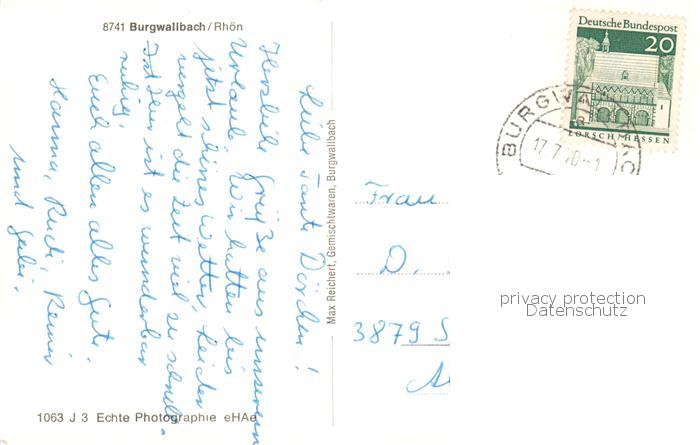 8741 Burgwallbach/Rhön
Liebe Tante Dörchen!
Herzliche Grüße aus unserem
Urlaub. Wir hatten bis
jetzt schönes Wetter, leider
vergeht die Zeit viel zu schnell.
Ist hier ist es wunderbar
ruhig.
Euch allen alles Gute.
Hanna, Rudi, Reiner
und
1063 J 3 Echte Photographie eHAe
Max Reichert, Gemischtwaren, Burgwallbach
Deutsche Bundespost
20
LORSCH/HESSEN
17.7.70-1
Frau
D.
3879 S
privacy protection
Datenschutz